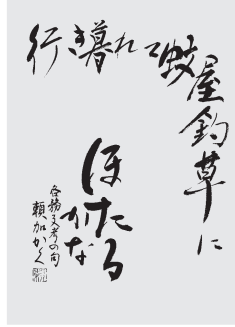 行き暮れて蚊屋釣草に
ほたる
かな
各務支考の句
頼加かく